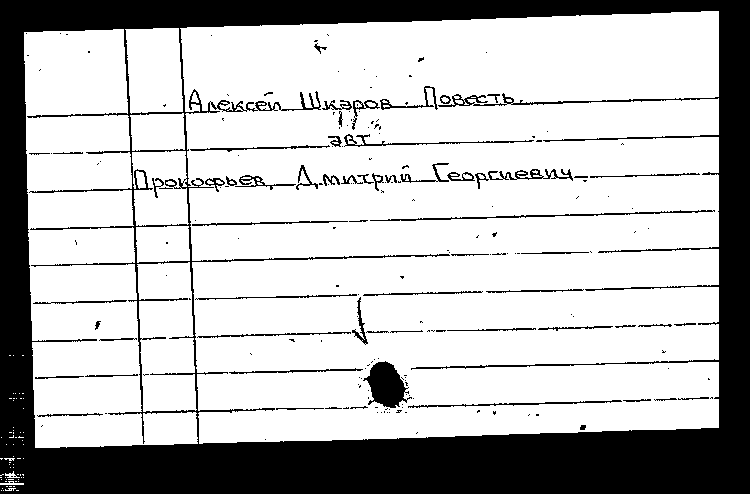 Алексей Шкэров. Повесть.
авт.
Прокофьев, Дмитрий Георгиевич.